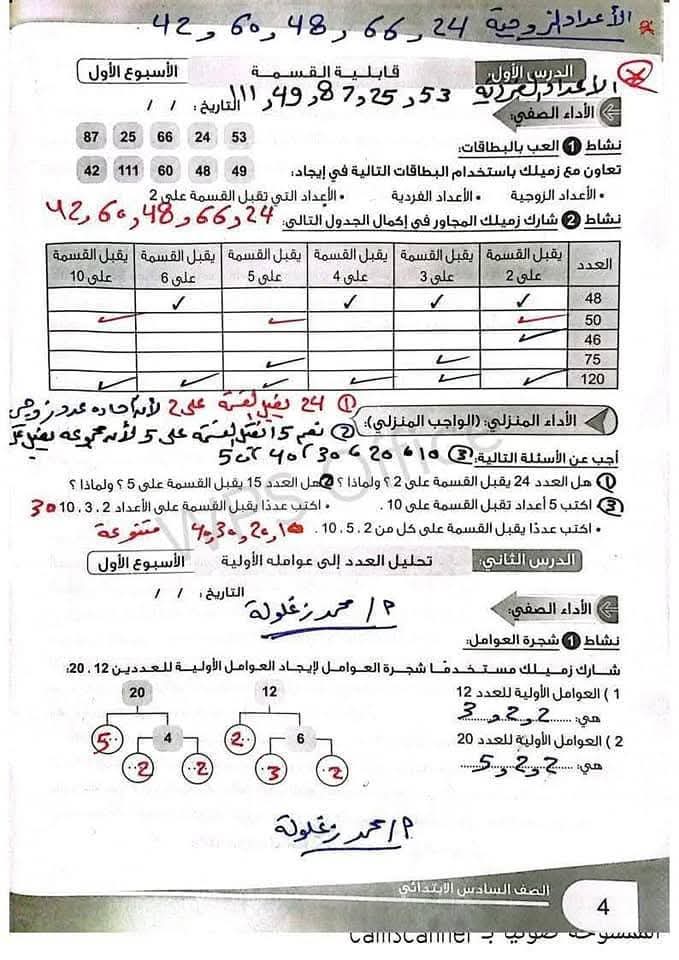 الأعداد الزوجية 24 و 66 و 48 و 60 و 42
الدرس الأول: قابلية القسمة الأسبوع الأول
الأعداد الفردية 53 و 25 و 87 و 49 و 111
الأداء الصفي: التاريخ: / /
87 25 66 24 53
42 111 60 48 49
نشاط 1 العب بالبطاقات:
تعاون مع زميلك باستخدام البطاقات التالية في إيجاد:
• الأعداد الزوجية • الأعداد الفردية • الأعداد التي تقبل القسمة على 2
24 و 66 و 48 و 60 و 42
نشاط 2 شارك زميلك المجاور في إكمال الجدول التالي:
العدد يقبل القسمة على 2 يقبل القسمة على 3 يقبل القسمة على 4 يقبل القسمة على 5 يقبل القسمة على 6 يقبل القسمة على 10
48 ✓ ✓ ✓ ✓
50 ✓ ✓ ✓
46 ✓
75 ✓ ✓
120 ✓ ✓ ✓ ✓ ✓ ✓
① 24 يقبل القسمة على 2 لأن آحاده عدد زوجي
الأداء المنزلي: (الواجب المنزلي):
② نعم 15 تقبل القسمة على 5 لأن
أجب عن الأسئلة التالية: ③ 10 و 20 و 30 و 40 و 50
① هل العدد 24 يقبل القسمة على 2 ؟ ولماذا ؟ ② هل العدد 15 يقبل القسمة على 5 ؟ ولماذا ؟
③ اكتب 5 أعداد تقبل القسمة على 10 . • اكتب عددًا يقبل القسمة على الأعداد 2 ، 3 ، 10 30
• اكتب عددًا يقبل القسمة على كل من 2 ، 5 ، 10 . 10 و 20 و 30 و 40 متنوعة
WPS Office
الدرس الثاني: تحليل العدد إلى عوامله الأولية الأسبوع الأول
الأداء الصفي: التاريخ: / /
م/ محمد زغلولة
نشاط 1 شجرة العوامل:
شارك زميلك مستخدمًا شجرة العوامل لإيجاد العوامل الأولية للعددين 12 ، 20 .
1 ) العوامل الأولية للعدد 12
هي: 2 و 2 و 3
2 ) العوامل الأولية للعدد 20
هي: 2 و 2 و 5
12
6 2
2 3
20
4 5
2 2
م/ محمد زغلولة
الصف السادس الابتدائي
4
الممسوحة ضوئيا بـ CamScanner